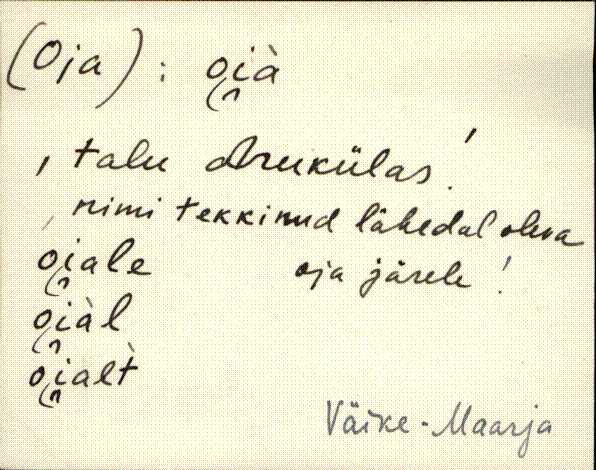 (Oja): oi̯à
, talu Arukülas!
, nimi tekkinud lähedal oleva
oi̯ale oja järele!
oi̯àl
oi̯alt̀
Väike-Maarja